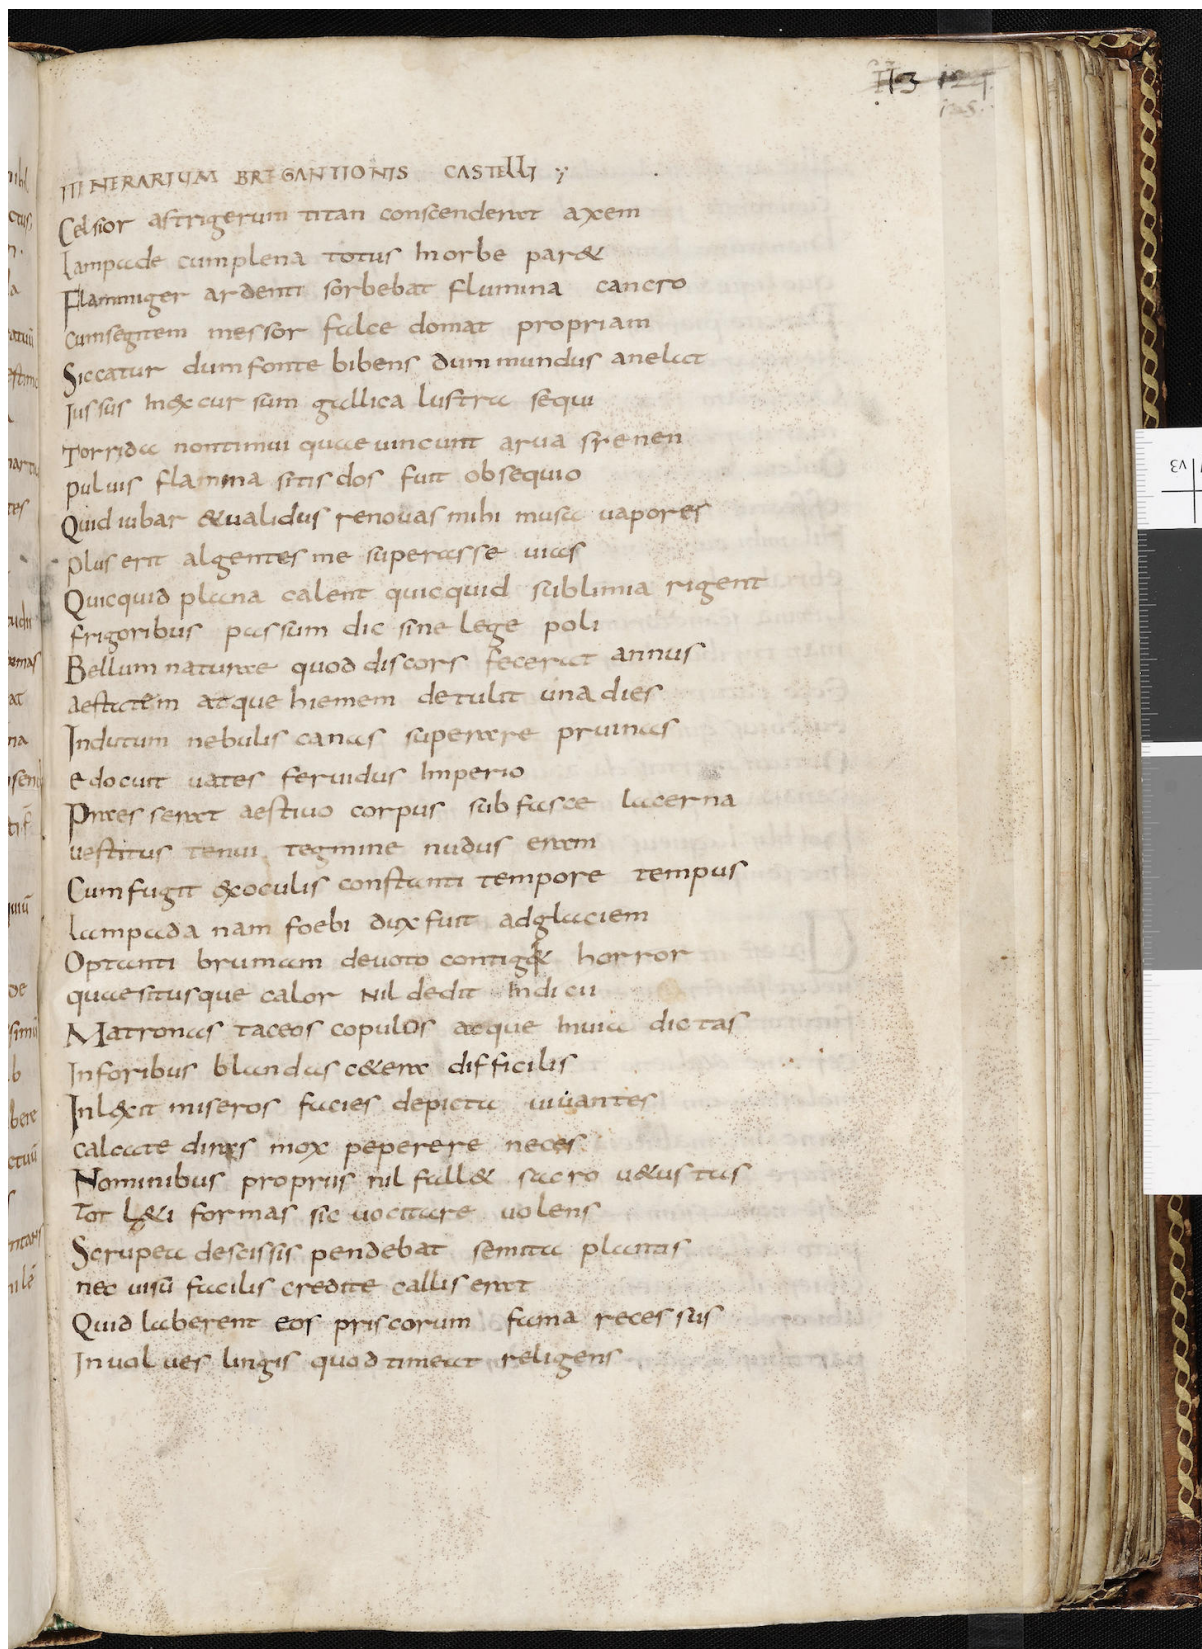 113 124
125.
ITINERARIUM BREGANTIONIS CASTELLI
Celsior astrigerum titan conscenderat axem
Lampade cumplena totus Inorbe par&
Flammiger ardenti sorbebat flumina cancro
Cumsegitem messor falce domat propriam
Siccatur dumfonte bibens dummundus anelat
Iussus Inexcursum gallica lustra sequi
Torrida nontimui quaeuincunt arua syenen
puluis flamma sitis dos fuit obsequio
Quid iubar &ualidus renouas mihi musa uapores
plus erit algentes me superasse uias
Quicquid plana calent quicquid sublimia rigent
frigoribus passum dic sine lege poli
Bellum naturae quod discors fecerat annus
aestatem atque hiemem detulit una dies
Indutum nebulis canas superare pruinas
edocuit uates feruidus Imperio
Praesserat aestiuo corpus sub fasce lacerna
uestitus tenui tegmine nudus eram
Cum fugit exoculis constanti tempore tempus
lampada nam foebi dux fuit adglaciem
Optanti brumam deuoto contig& horror
quaesitusque calor Nil dedit Indicii
Matronas taceos copulos atque Inuia dictas
Inforibus blandas c&era difficilis
Inlexit miseros facies depicta uiuantes
calcate diras mox peperere neces
Nominibus propriis nil fall& sacro u&ustas
Tot l&i formas sic uocitare uolens
Scrupea descissis pendebat semita plantis
nec uisū facilis credite callis erat
Quid laberent eos priscorum fama recessus
Inuolues lingis quod timeat religens